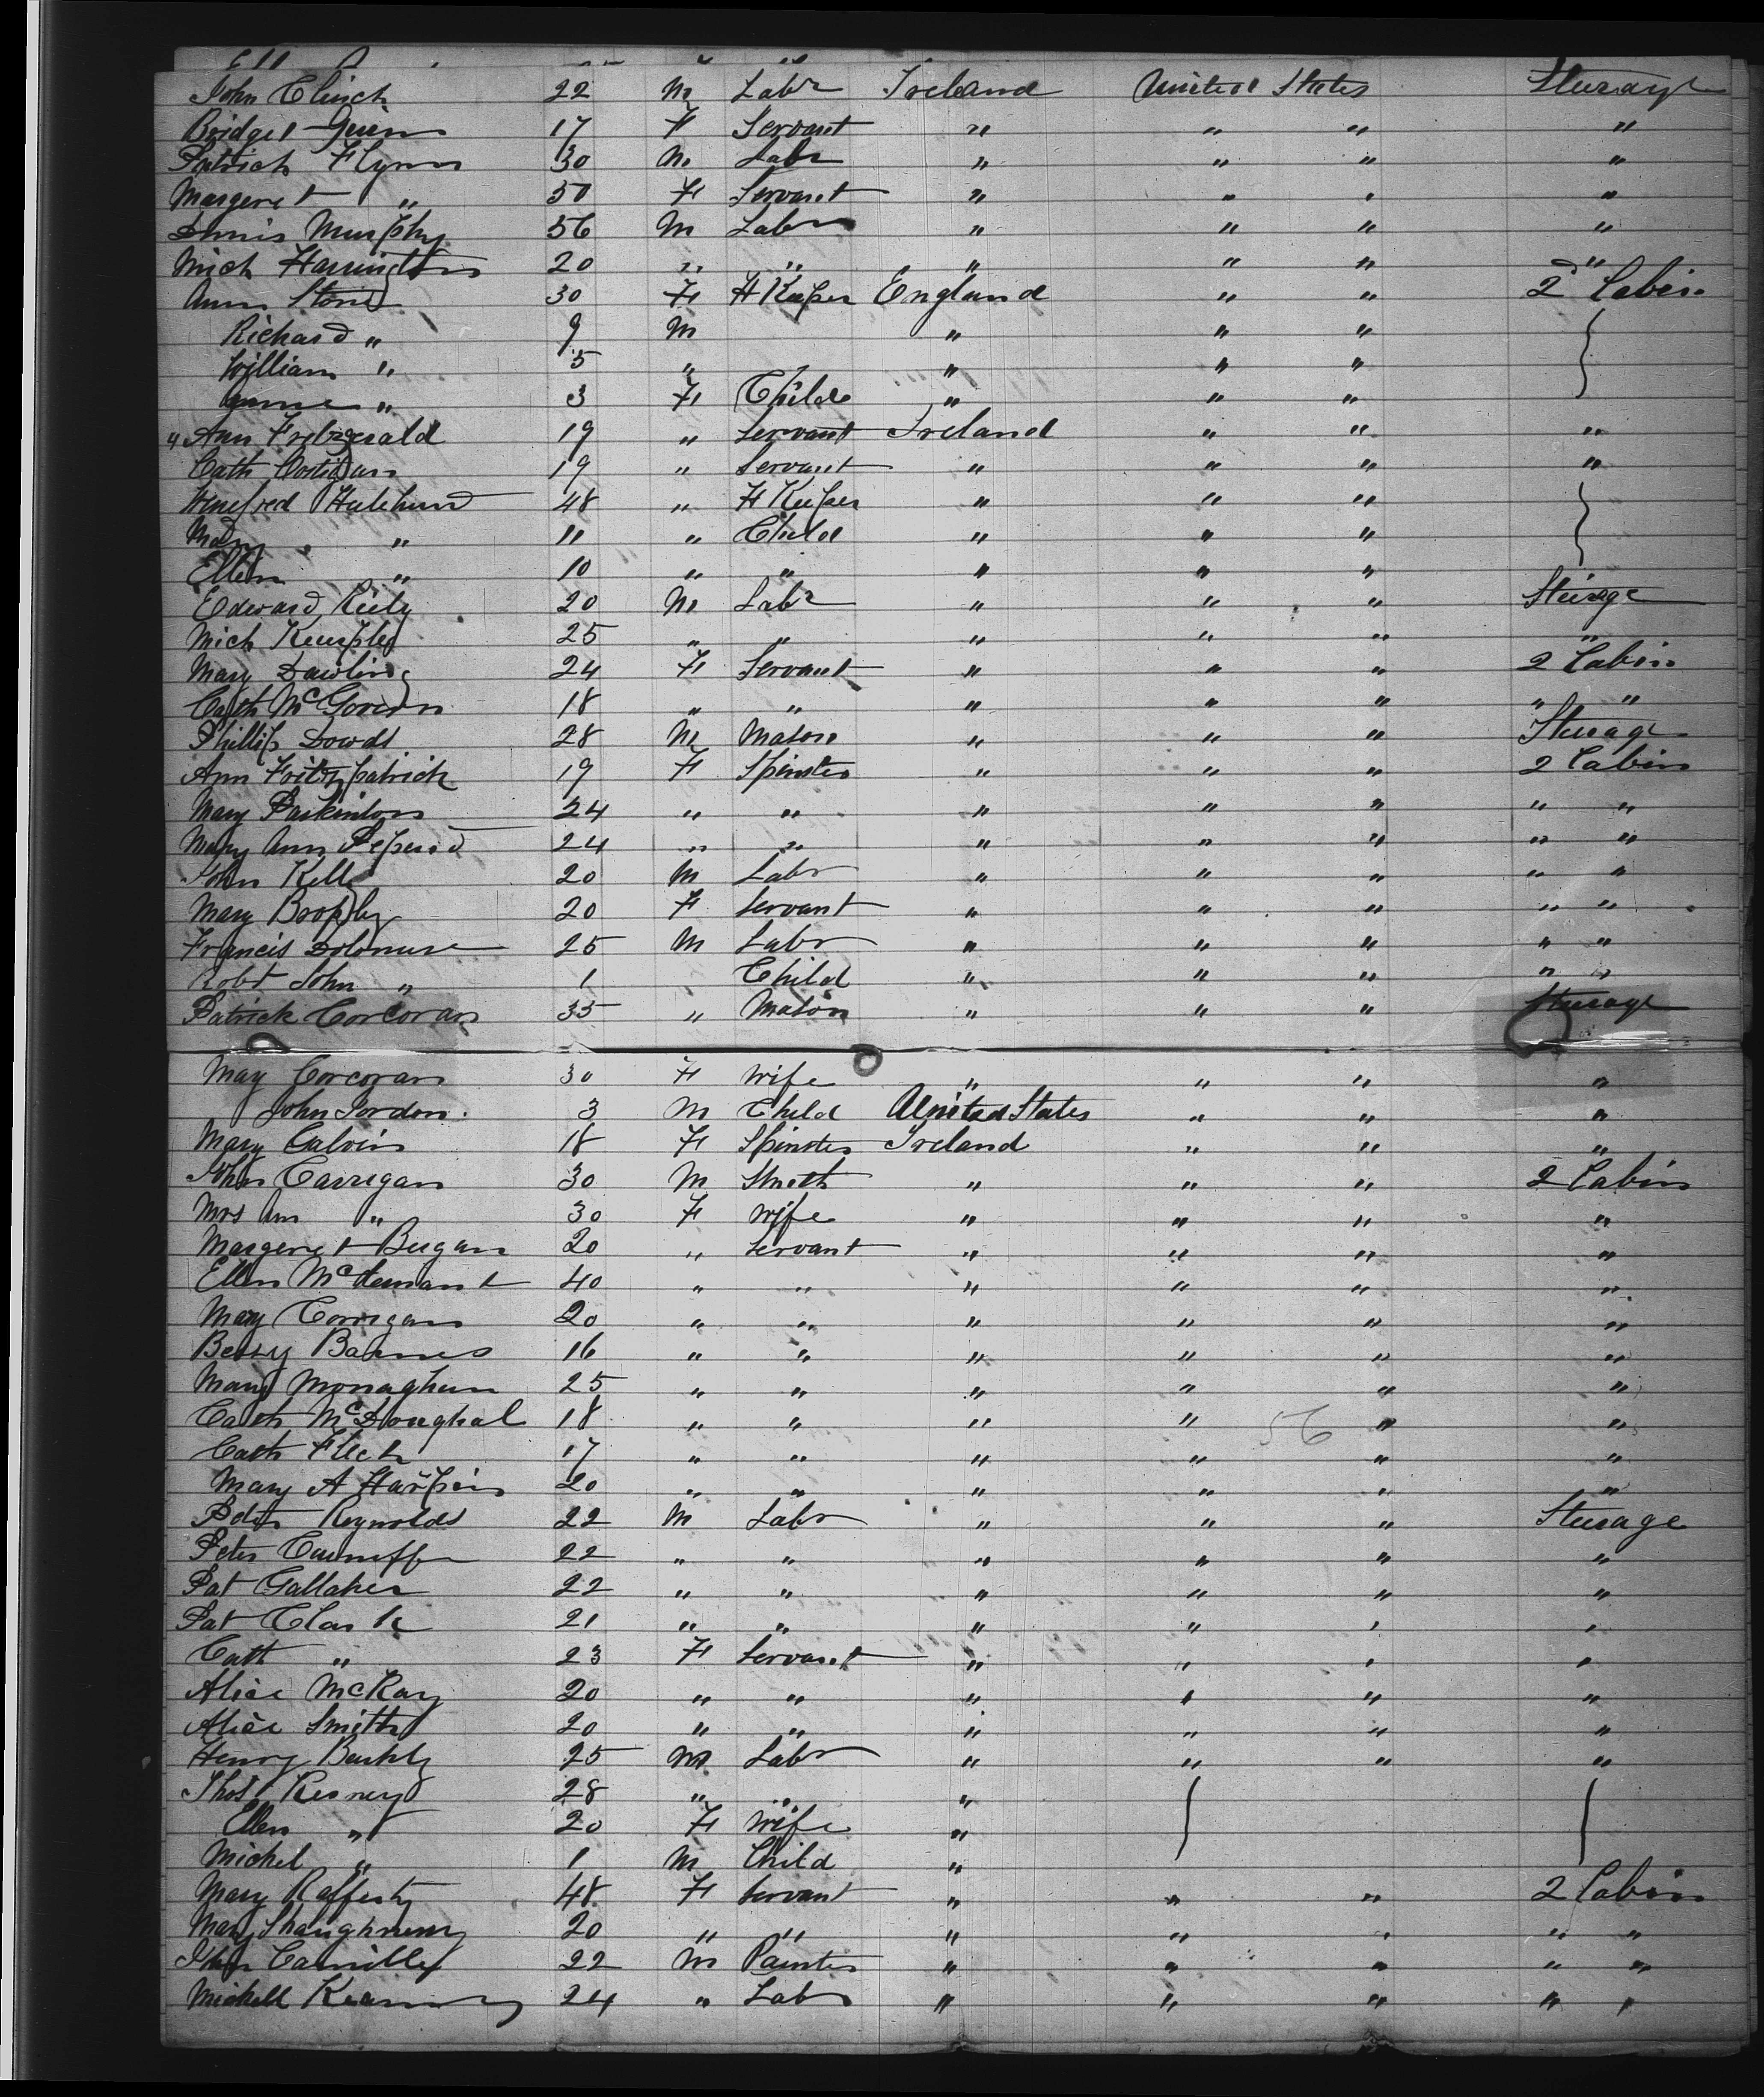 John Clinch 22 M Labr Ireland United States Steerage
Bridget Guinn 17 F Servant " " " "
Patrick Flynn 30 M Labr " " " "
Margeret " 50 F Servant " " " "
Dennis Murphy 56 M Labr " " " "
Mich Harrington 20 " " " " " "
Ann Stone 30 F H Keeper England " " 2d Cabin
Richard " 9 M " " "
William " 5 " " " "
" 3 F Child " " "
Ann Fitzgerald 19 " Servant Ireland " " "
Cath Costigan 19 " Servant " " " "
Winefred 48 " H Keeper " " "
Mary " 11 " Child " " "
Ellen " 10 " " " " "
Edward Riely 20 M Labr " " " Steirage
Mich 25 " " " " " "
Mary Dawling 24 F Servant " " " 2 Cabin
Cath McGovern 18 " " " " " " "
Phillip Dowd 28 M Mason " " " Sterage
Ann Fritzpatrick 19 F Spinster " " " 2 Cabin
Mary Parkinton 24 " " " " " " "
Mary Ann 24 " " " " " " "
John Kelly 20 M Labr " " " " "
Mary Brophy 20 F Servant " " " " "
Francis 25 M Labr " " " " "
Robt John " 1 Child " " " " "
Patrick Corcoran 35 " Mason " " " Sterage
May Corcoran 30 F Wife " " " "
John Gordon. 3 M Child United States " " "
Mary Galvin 18 F Spinster Ireland " " "
John Carrigan 30 M Smith " " " 2 Cabin
Mrs Ann " 30 F Wife " " " "
Margeret Bergan 20 " Servant " " " "
Ellen 40 " " " " " "
Mary Corrigan 20 " " " " " "
Betsy Barnes 16 " " " " " "
Mary Monaghan 25 " " " " " "
Cath McDonghal 18 " " " " 56 " "
Cath 17 " " " " " "
Mary A Harpin 20 " " " " " "
Peter Reynolds 22 M Labr " " " Sterage
Peter 22 " " " " " "
Pat Gallaher 22 " " " " " "
Pat Clark 21 " " " " " "
Cath " 23 F Servant " " " "
Alice McKay 20 " " " " " "
Alice Smith 20 " " " " " "
Henry 25 M Labr " " " "
Thos Kerney 28 " " "
Ellen " 20 F Wife "
Michel " 1 M Child "
Mary Rafferty 48 F Servant " " " 2 Cabin
Mary Shaughnessy 20 " " " " " " "
John 22 M Painter " " " " "
Michell Kearney 24 " Labr " " " " "